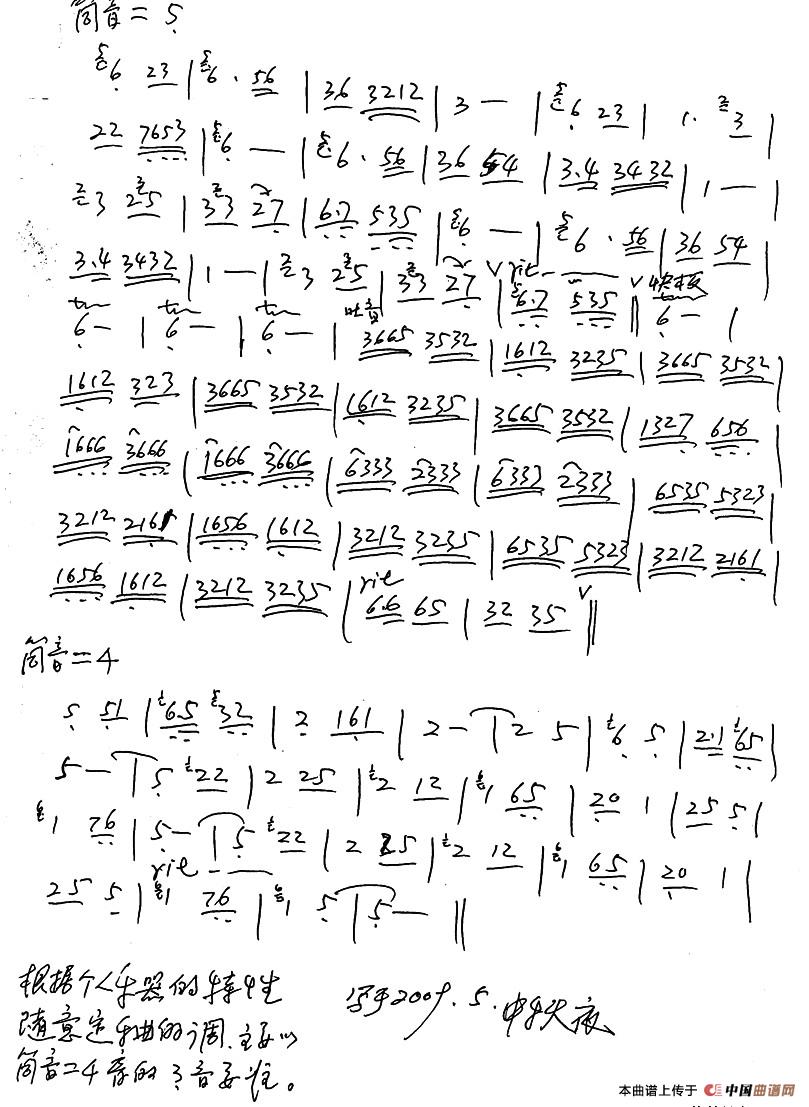 筒音=5
6 23 | 6 · 56 | 36 3212 | 3 — | 6 23 | 1 · 3 |
22 7653 | 6 — | 6 · 56 | 36 54 | 3.4 3432 | 1 — |
3 25 | 33 27 | 6.7 535 | 6 — | 6 · 56 | 36 54 |
3.4 3432 | 1 — | 3 25 | 33 27 V rit | 6.7 535 V ‖ 快板
tr 6 — | tr 6 — | tr 6 — | 吐音 3665 3532 | 1612 3235 | 3665 3532 |
1612 323 | 3665 3532 | 1612 3235 | 3665 3532 | 1327 656 |
1666 3666 | 1666 3666 | 6333 2333 | 6333 2333 | 6535 5323 |
3212 2161 | 1656 1612 | 3212 3235 | 6535 5323 | 3212 2161 |
1656 1612 | 3212 3235 | rit 6.6 65 | 32 35 V ‖
筒音=4
5 51 | 65 32 | 2 161 | 2 — | 2 5 | 6 5 | 2.1 65 |
5 — | 5 22 | 2 25 | 2 12 | 1 65 | 20 1 | 25 5 |
1 76 | 5 — | 5 22 | 2 25 | 2 12 | 1 65 | 20 1 |
25 5 | rit 1 76 | 1 5 | 5 — ‖
根据个人乐器的特性
随意定乐曲的调.主要以
筒音=4音的3音要准。
写于2009.5.
本曲谱上传于 中国曲谱网